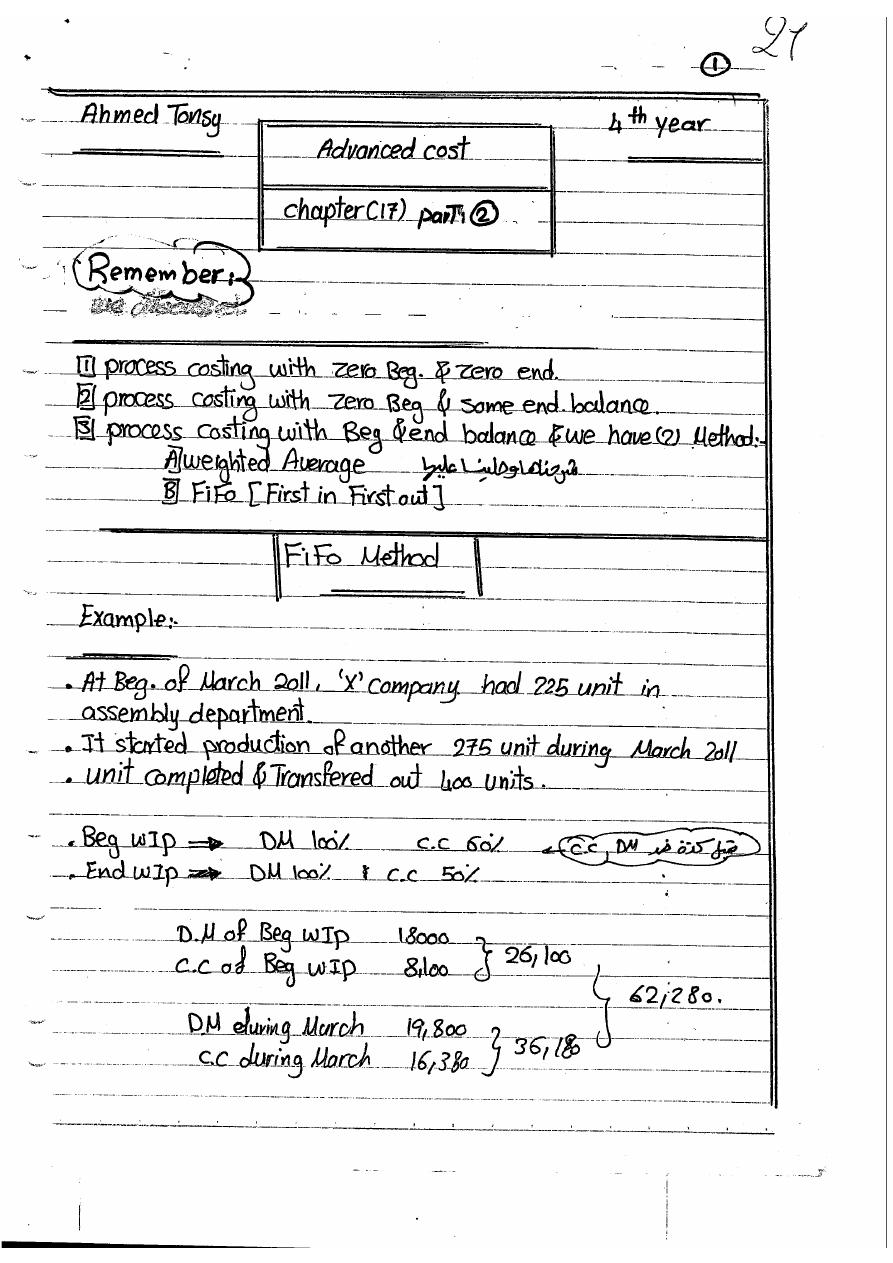 21
①
Ahmed Tonsy
4th year
Advanced cost
chapter(17) part ②
Remember:-
we discussed
1 process costing with zero Beg. & zero end.
2 process costing with zero Beg & some end balance.
3 process costing with Beg & end balance & we have (2) Method:-
A weighted Average
B FiFo [First in First out]
FiFo Method
Example:-
. At Beg. of March 2011, 'X' company had 225 unit in
assembly department.
. It started production of another 275 unit during March 2011
. unit completed & Transfered out 400 units.
. Beg WIp ⇒ DM 100% C.C 60% C.C, DM
. End WIp ⇒ DM 100% & C.C 50%
D.M of Beg WIp 18000
26,100
C.C of Beg WIp 8,100
62,280.
DM during March 19,800
36,180
C.C during March 16,380